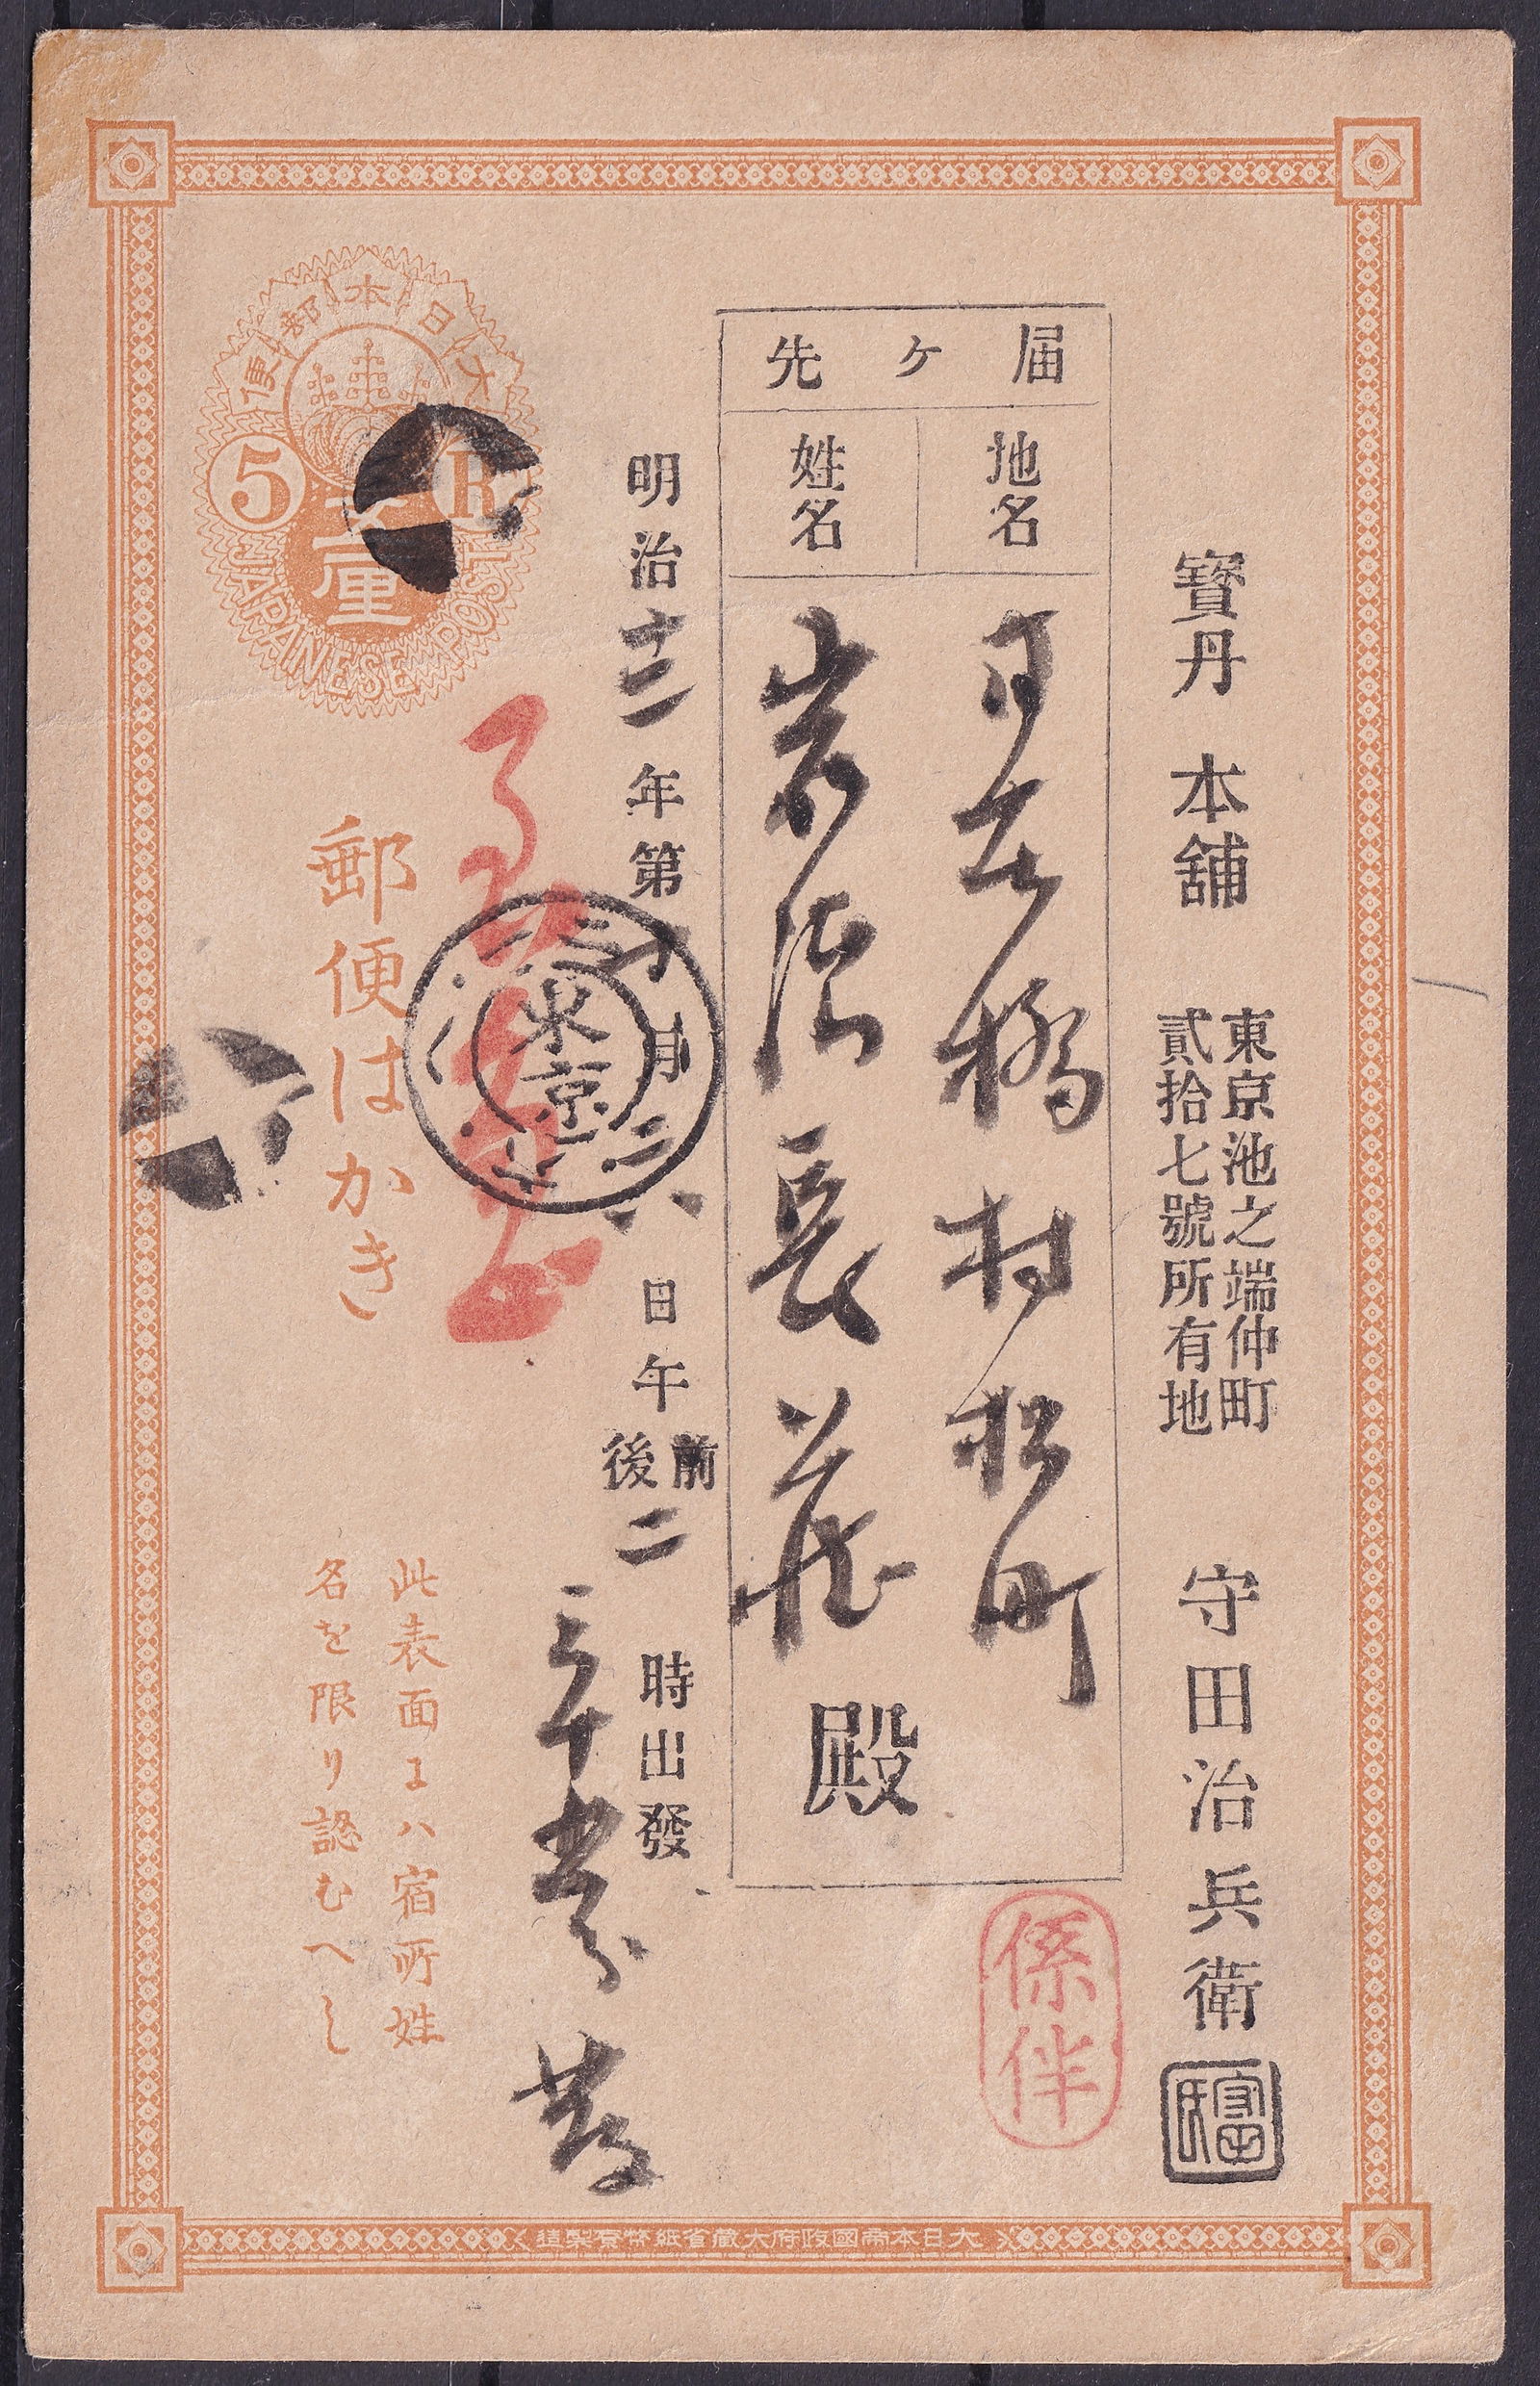 寶丹本舗
東京池之端仲町
貳拾七號所有地
守田治兵衛
届ケ先
地名
姓名
日本橋村松町
長蔵殿
係伴
明治十二年第十月二八日午前後二時出發
三十
東京
大日本郵便
5 R
五厘
JAPANESE POST
郵便はかき
此表面にハ宿所姓
名を限り認むへし
大日本帝國政府大蔵省紙幣寮製造